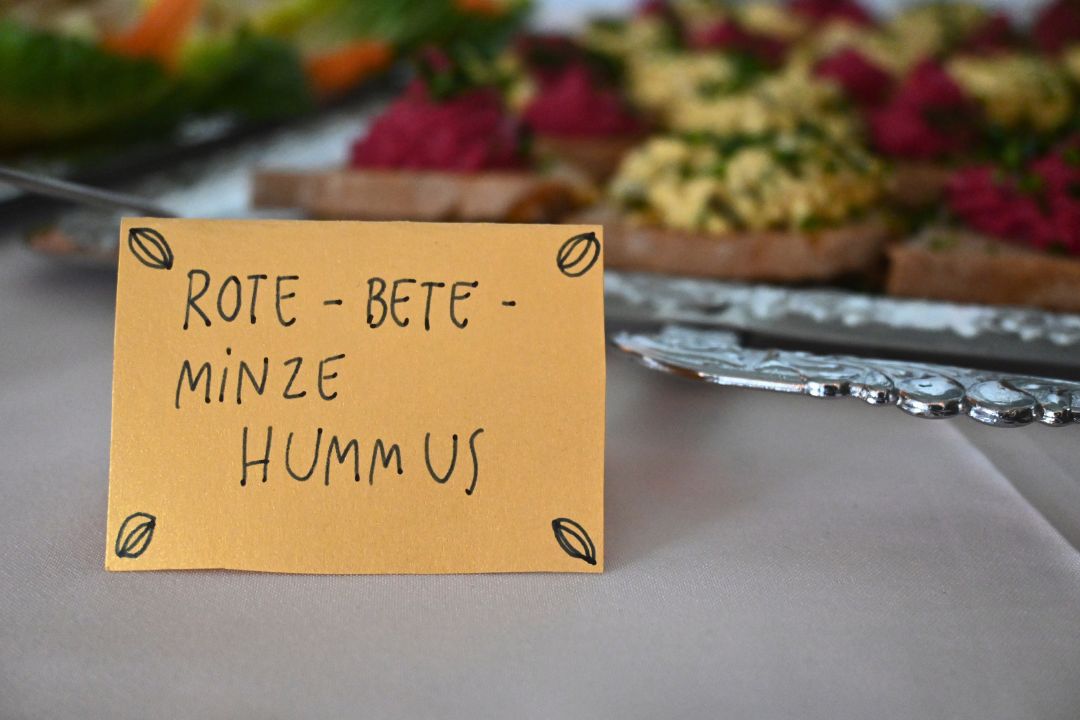 ROTE - BETE -
MiNZE
HUMMUS